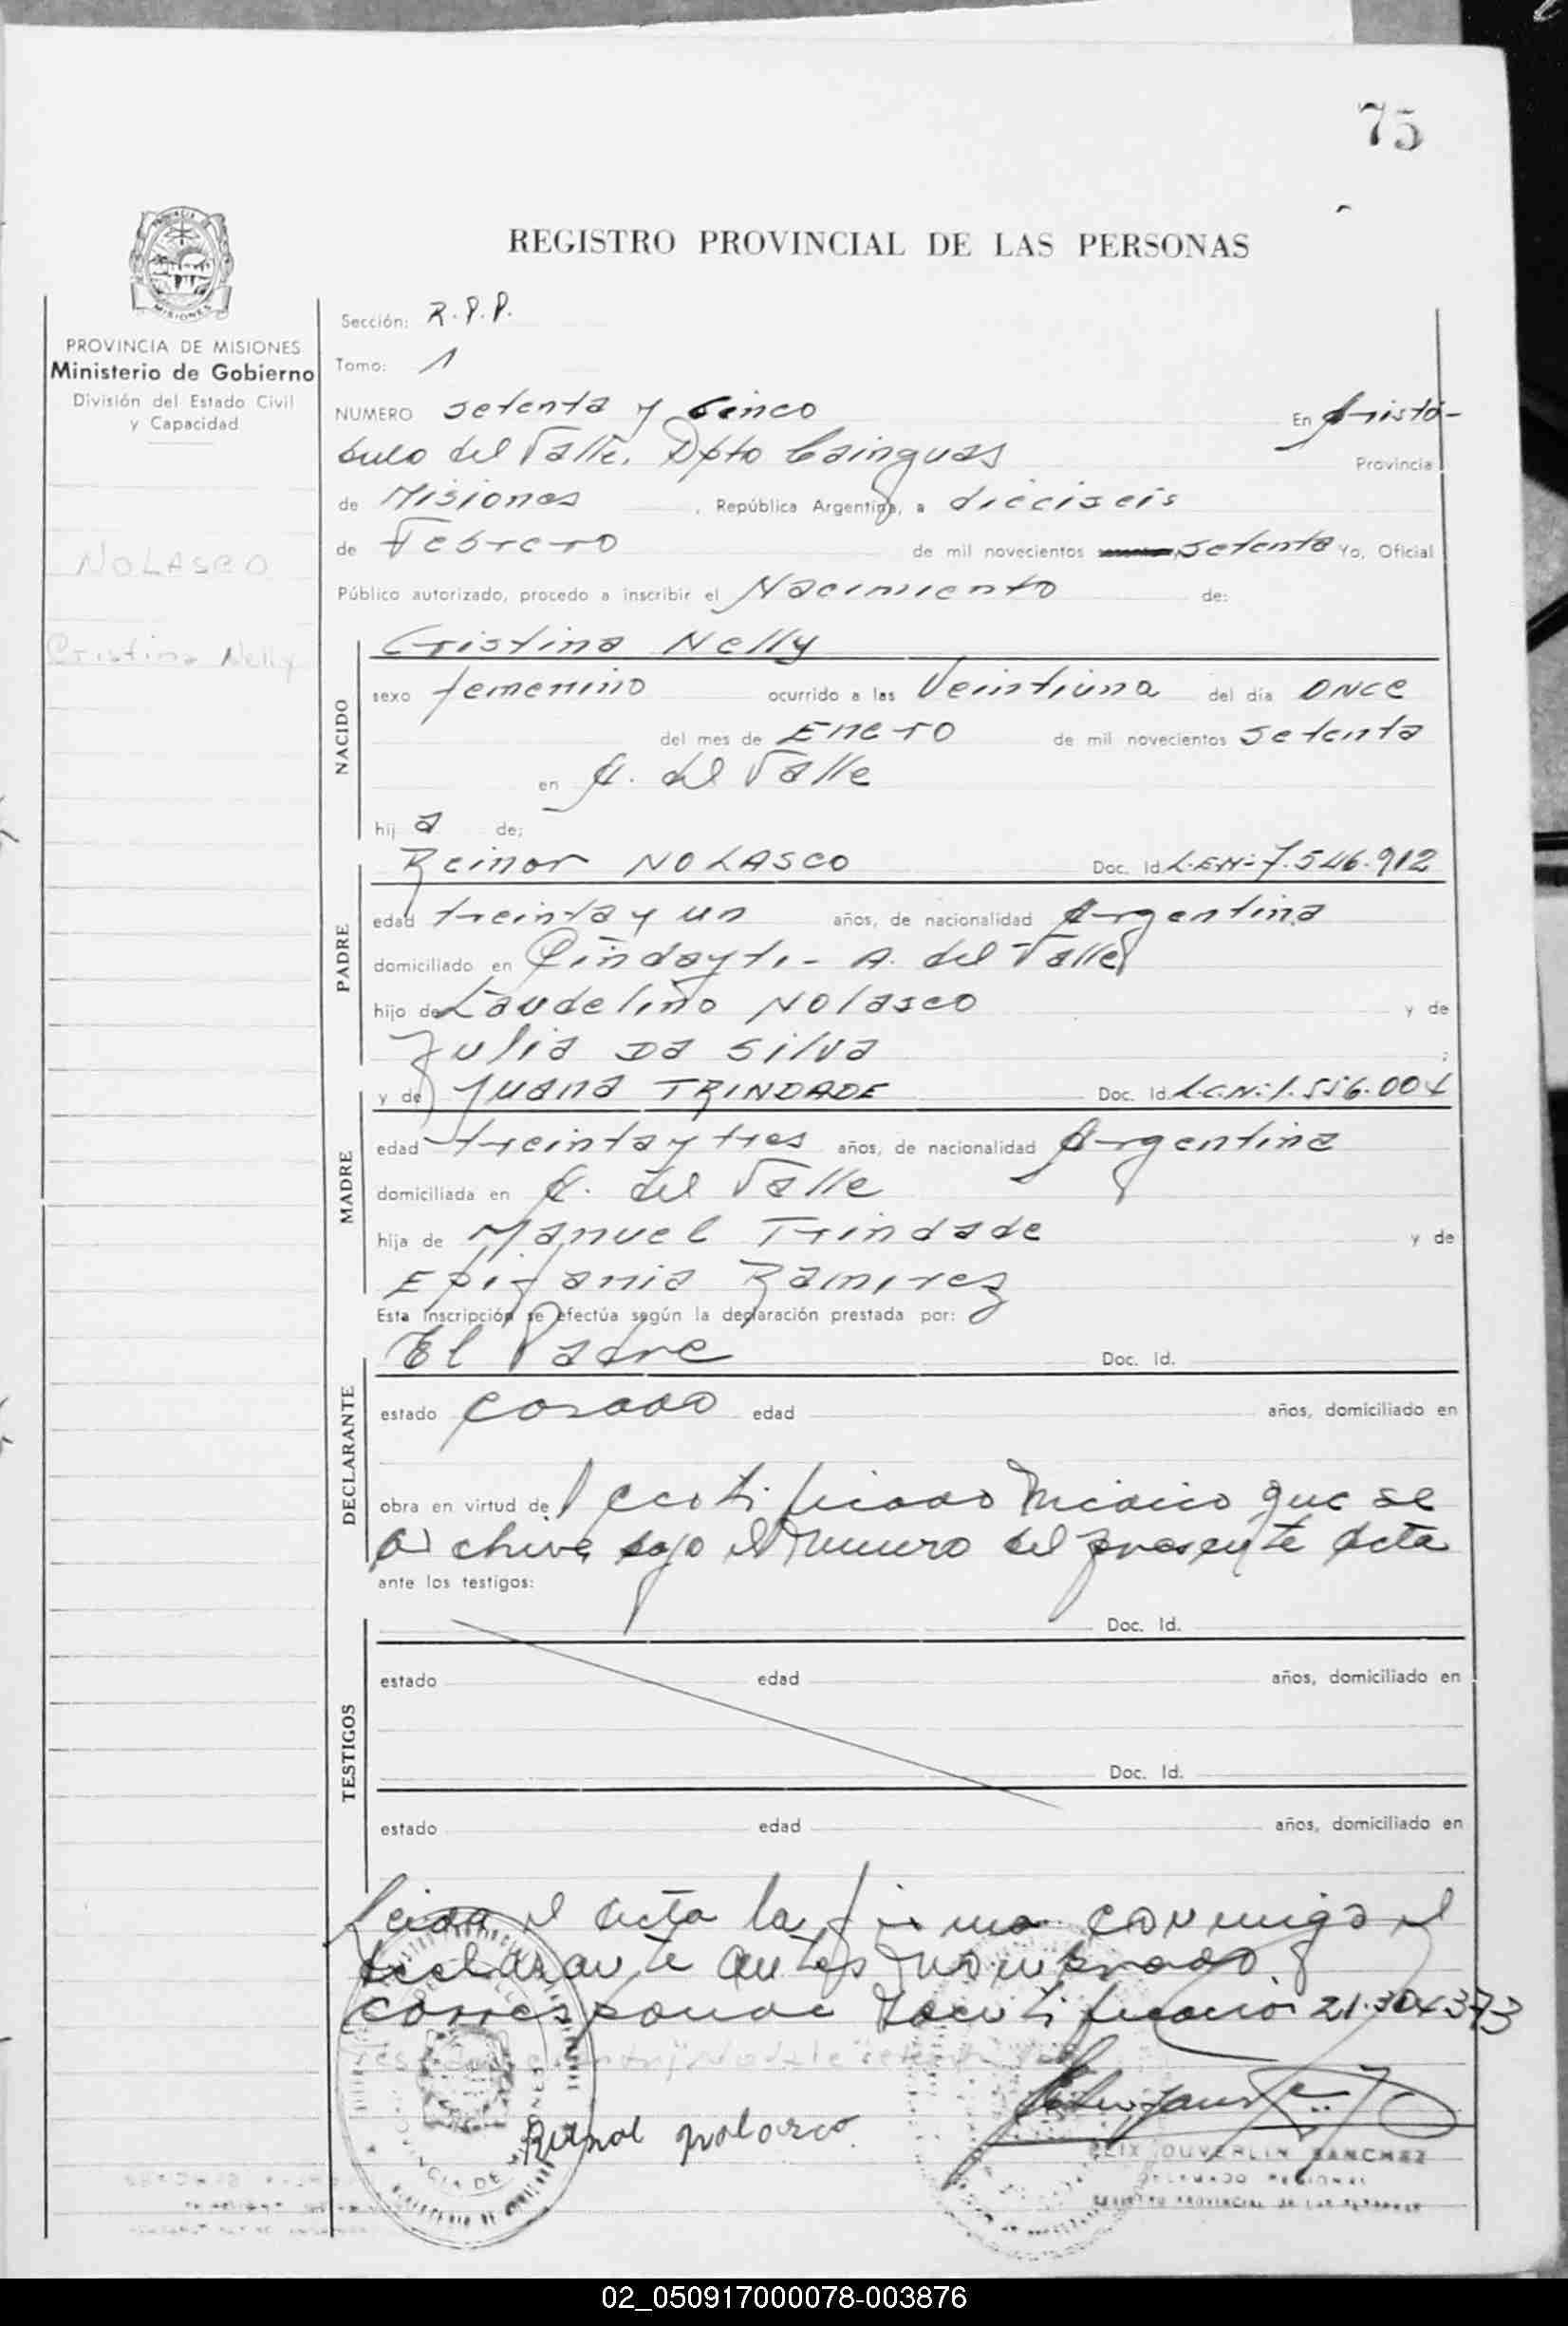 75
REGISTRO PROVINCIAL DE LAS PERSONAS
PROVINCIA DE MISIONES
Ministerio de Gobierno
División del Estado Civil
y Capacidad
NOLASCO
Cristina Nelly
Sección: R.P.P.
Tomo: 1
NUMERO setenta y cinco En Aristó-
bulo del Valle, Dpto Cainguas Provincia
de Misiones, República Argentina, a dieciseis
de Febrero de mil novecientos setenta Yo, Oficial
Público autorizado, procedo a inscribir el Nacimiento de:
NACIDO
Cristina Nelly
sexo femenino ocurrido a las Veintiuna del día ONCE
del mes de Enero de mil novecientos setenta
en A. del Valle
hij a de;
PADRE
Reinor NOLASCO Doc. Id. L.E.N: 7.546.912
edad treinta y un años, de nacionalidad Argentina
domiciliado en Pindayti - A. del Valle
hijo de Laudelino Nolasco y de
Julia Da Silva ;
MADRE
y de Juana TRINDADE Doc. Id. L.C.N: 1.556.004
edad treinta y tres años, de nacionalidad Argentina
domiciliada en A. del Valle
hija de Manuel Trindade y de
Epifania Ramirez
Esta inscripción se efectúa según la declaración prestada por:
DECLARANTE
El Padre Doc. Id.
estado casado edad años, domiciliado en
obra en virtud de: certificado medico que se
archiva bajo el numero del presente acta
ante los testigos:
TESTIGOS
Doc. Id.
estado edad años, domiciliado en
Doc. Id.
estado edad años, domiciliado en
Leida el acta la firma conmigo el
declarante antes nombrado
corresponde 21.304373
Nolasco
FELIX DUVERLIN SANCHEZ
DELEGADO REGIONAL
REGISTRO PROVINCIAL DE LAS PERSONAS
02_050917000078-003876